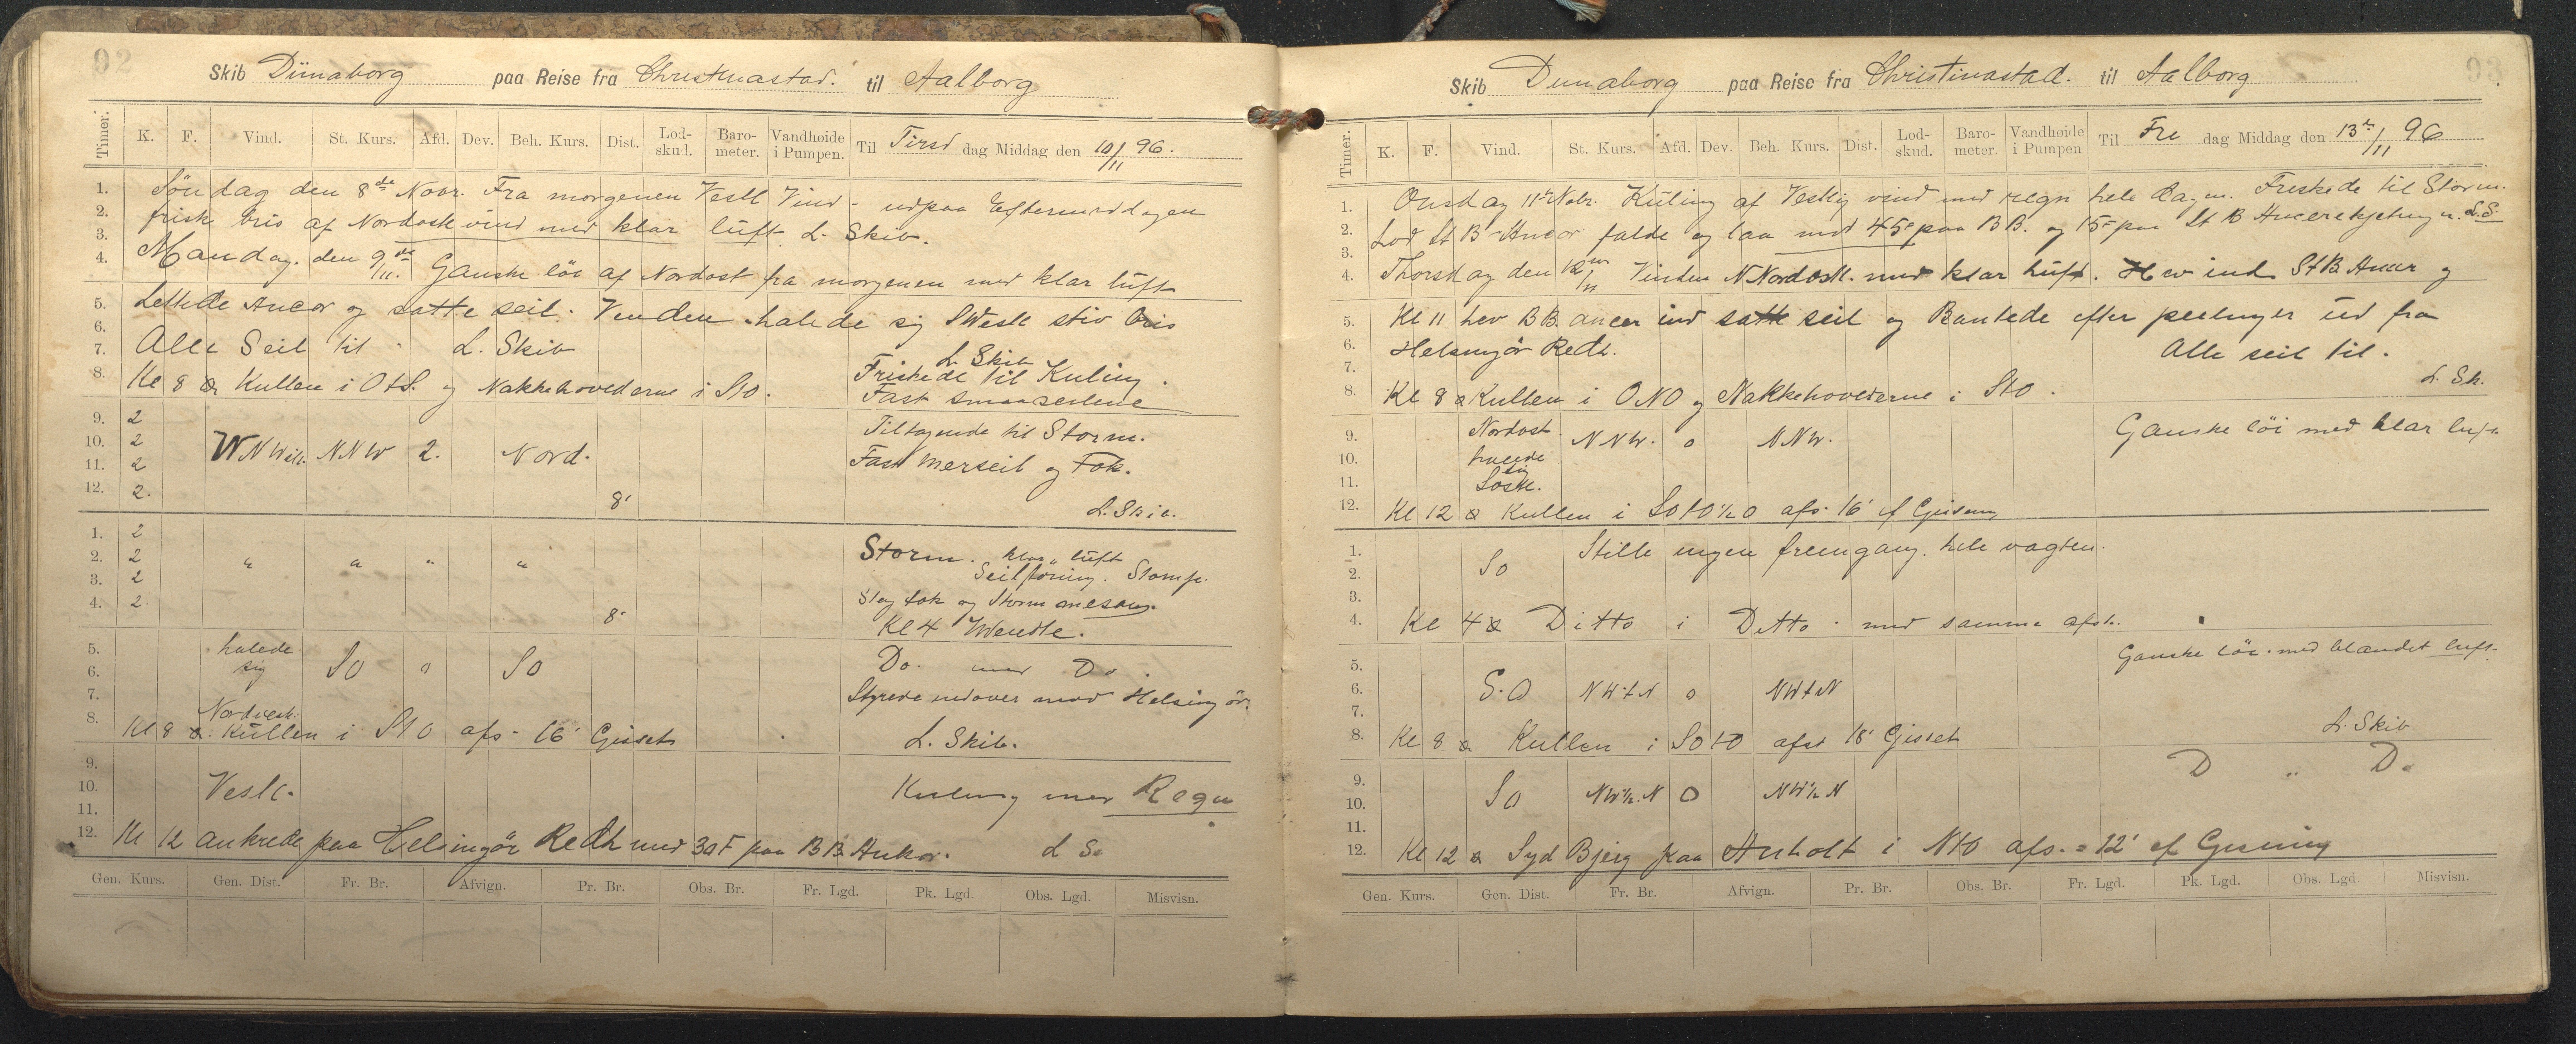 92
Skib Dünaborg paa Reise fra Christinastad. til Aalborg
Timer. K. F. Vind. St. Kurs. Afd. Dev. Beh. Kurs. Dist. Lod-skud. Baro-meter. Vandhøide i Pumpen. Til Tirsd dag Middag den 10/11 96.
1. Söndag den 8de Novr. Fra morgenen Vestl Vind - udpaa Eftermiddagen
2. frisk bris af Nordostl vind med klar lüft. L. Skib.
3.
4. Mandag. den 9de/11. Ganske löi af Nordost fra morgenen med klar lüft
5. Lettede Ancor og satte seil. Venden halede sig SWestl stiv bris
6.
7. Alle Seil til. L. Skib
L. Skib
Friskede til Kuling.
8. Kl 8 Kullen i OtS. og Nakkehovederne i StO.
Fast smaaseilene
9. 2
Tiltagende til Storm.
10. 2 WNWstl. NNW 2. Nord.
11. 2 Fast Merseil og Fok.
12. 2. 8'
L. Skib.
1. 2
2. 2 " " " " Storm. klar lüft
3. 2 Seilföring. Stomp.
4. 2 8' Stag fok og Storm mesang.
Kl 4 Wendte.
5. halede
6. sig SO 0 SO Do. med Do.
7. Styrede indover mod Helsingör.
Nordvestl.
8. Kl 8 Kullen i StO afs. 16' Gisset
L. Skib.
9.
10. Vestl. Kuling med Regn
11.
12. Kl 12 ankrede paa Helsingör Redh med 30F paa BB Ankor. L S.
Gen. Kurs. Gen. Dist. Fr. Br. Afvign. Pr. Br. Obs. Br. Fr. Lgd. Pk. Lgd. Obs. Lgd. Misvisn.
93
Skib Dunaborg paa Reise fra Christinastad. til Aalborg
Timer. K. F. Vind. St. Kurs. Afd. Dev. Beh. Kurs. Dist. Lod-skud. Baro-meter. Vandhøide i Pumpen Til Fre dag Middag den 13de/11 96
1. Onsdag 11te Nobr. Küling af Vestlig vind med regn hele dagen. Friskede til Storm.
2. Lod St B Ancor falde og laa med 45F paa BB. og 15F paa St B Ancerkjetingen. L.S.
3.
4. Thorsdag den 12te/11 Vinden NNordostl. med klar lüft. Hev ind St B Ancer og
5. Kl 11 hev BB. ancer ind satte seil og Bautede efter peelinger üd fra
6. Helsingör Redh. Alle seil til.
7.
8. Kl 8 Kullen i ONO og Nakkehovederne i StO.
L. Sk.
9. Nordost. NNW. 0 NNW. Ganske löi med klar luft
10. halede
sig
11. Sostl.
12. Kl 12 Kullen i SOtO½O afs. 16' ef Gisning
1. Stille ingen fremgang. hele vagten.
2. SO
3.
4. Kl 4 Ditto i Ditto. med samme afst.
5. Ganske löi. med blandet luft.
6. S.O NWtN 0 NWtN
7.
8. Kl 8 Kullen i SOtO afst 18' Gisset
L. Skib
9. D " Do
10. SO NW½N 0 NW½N
11.
12. Kl 12 Syd Bjerg paa Anholt i NtO afs. = 12' ef Gisning
Gen. Kurs. Gen. Dist. Fr. Br. Afvign. Pr. Br. Obs. Br. Fr. Lgd. Pk. Lgd. Obs. Lgd. Misvisn.